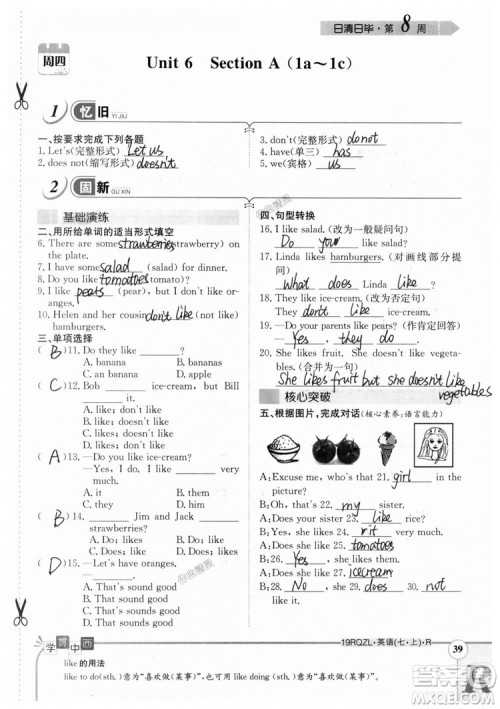 日清日毕·第8周
周四
Unit 6 Section A (1a~1c)
1 忆旧 YI JIU
一、按要求完成下列各题
1. Let's(完整形式) Let us
2. does not(缩写形式) doesn't
3. don't(完整形式) do not
4. have(单三) has
5. we(宾格) us
2 固新 GU XIN
基础演练
二、用所给单词的适当形式填空
6. There are some strawberries (strawberry) on
the plate.
7. I have some salad (salad) for dinner.
8. Do you like tomatoes (tomato)?
9. I like pears (pear), but I don't like or-
anges.
10. Helen and her cousin don't (not like)
hamburgers.
三、单项选择
( B )11. Do they like ______?
A. banana B. bananas
C. an banana D. a bananas
( C )12. Bob ______ ice-cream, but Bill
______ it.
A. like; don't like
B. likes; don't like
C. likes; doesn't like
D. like; doesn't like
( A )13. —Do you like ice-cream?
—Yes, I do. I like ______ very
much.
A. it B. them
C. they D. him
( B )14. ______ Jim and Jack ______
strawberries?
A. Do; likes B. Do; like
C. Does; like D. Does; likes
( D )15. —Let's have ice-cream.
—______.
A. That sound good
B. Thats sound good
C. Thats sounds good
D. That sounds good
四、句型转换
16. I like salad. (改为一般疑问句)
Do you like salad?
17. Linda likes hamburgers. (对画线部分提
问)
What does Linda like?
18. They like ice-cream. (改为否定句)
They don't like ice-cream.
19. —Do your parents like pears? (作肯定回答)
—Yes, they do.
20. She likes fruit. She doesn't like vegeta-
bles. (合并为一句)
She likes fruit but she doesn't like
vegetables
核心突破
五、根据图片,完成对话(核心素养:语言能力)
A: Excuse me, who's that 21. girl in the
picture?
B: Oh, that's 22. my sister.
A: Does your sister 23. like rice?
B: Yes, she 24. likes rice very much.
A: Does she like 25. tomatoes?
B: 26. Yes, she likes them.
A: Does she like 27. icecream?
not like
学博中西
19RQZL·英语(七·上)·R
39
like 的用法
like to do(sth.)意为“喜欢做(某事)”,也可用 like doing (sth.)意为“喜欢做(某事)”。